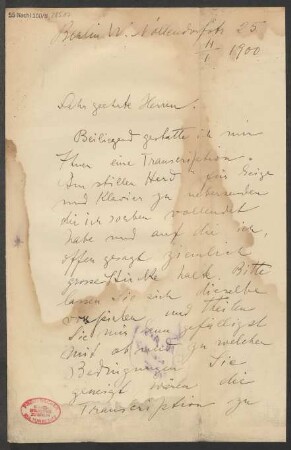 Berlin W. Nollendorfstr 25
11/1 1900
Sehr geehrte Herren!
Beiliegend gestatte ich mir
Ihnen eine Transcription.
Am stillen Herd für Geige
und Klavier zu
die ich soeben vollendet
habe und auf die ich,
offen gesagt ziemlich
grosse Stücke halte. Bitte
lassen Sie sich dieselbe
vorspielen und theilen
Sie mir dann gefälligst
mit ob und zu welchen
Bedingungen Sie
geneigt wären die
Transcription zu